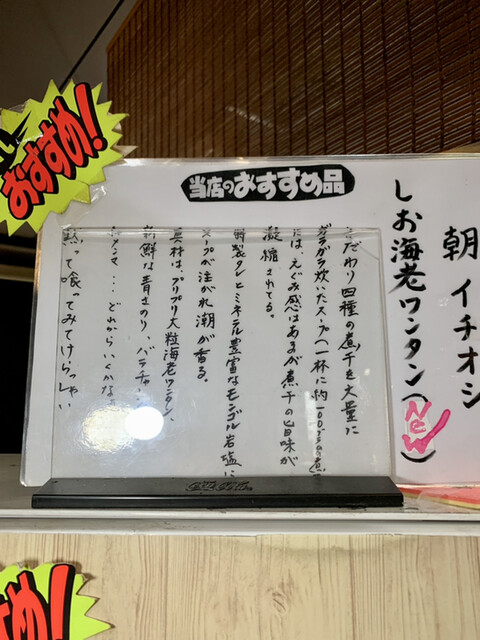 おすすめ!
当店のおすすめ品
朝 イチオシ
しお海老ワンタン(New)
こだわり四種の煮干を大量に
ガラガラ炊いたスープ(一杯に約100gの煮
には、えぐみ感はあるが煮干の旨味が
凝縮されてる。
特製タレとミネラル豊富なモンゴル岩塩に
スープが注がれ潮が香る。
具材は、プリプリ大粒海老ワンタン、
新鮮な青さのり、バラチャー
どれからいくかな
黙って喰ってみてけらっしゃい
すめ!